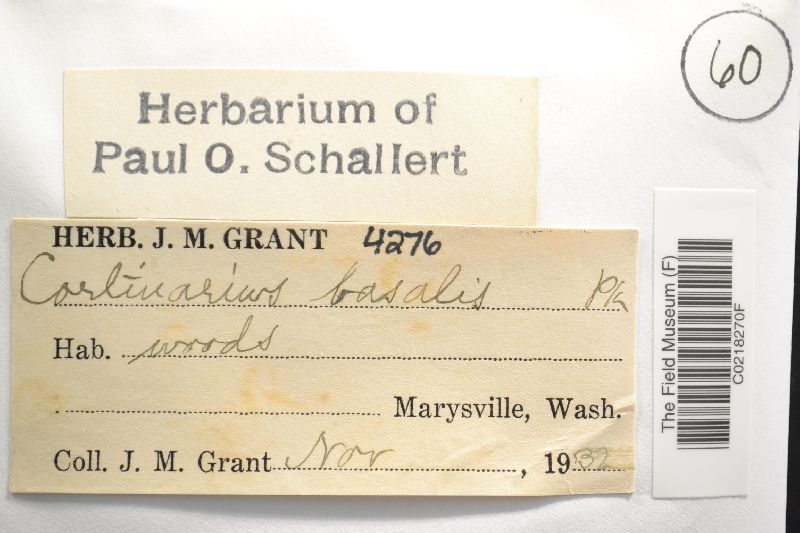 60
Herbarium of
Paul O. Schallert
HERB. J. M. GRANT 4276
Cortinarius basalis Pk
Hab. woods
Marysville, Wash.
Coll. J. M. Grant Nov , 1932
The Field Museum (F)
C0218270F